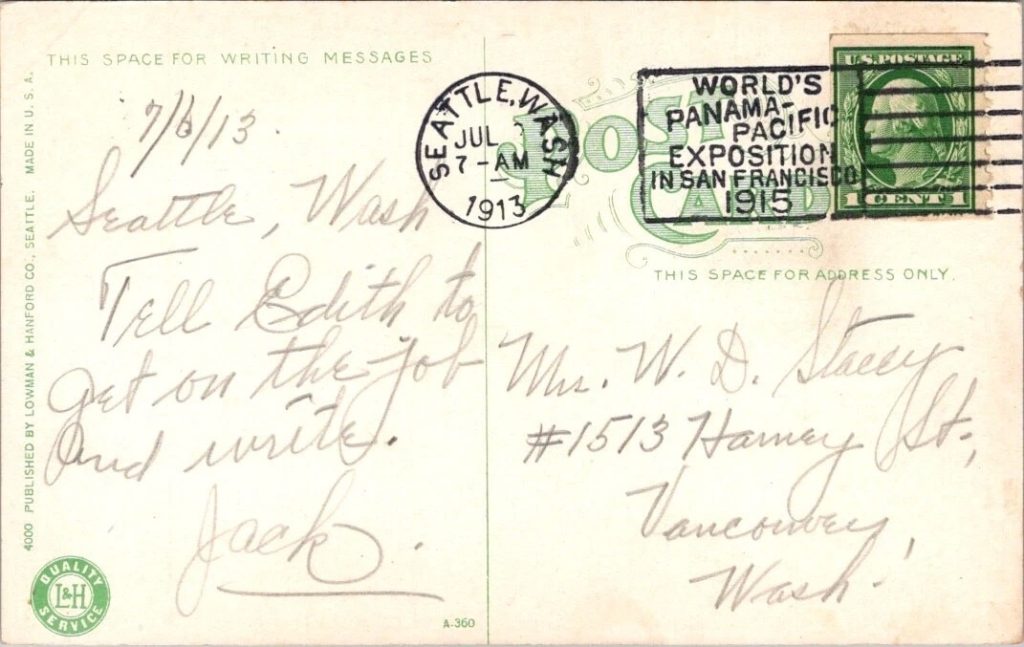 THIS SPACE FOR WRITING MESSAGES
7/6/13.
Seattle, Wash
Tell Edith to
get on the job
and write.
Jack.
4000 PUBLISHED BY LOWMAN & HANFORD CO., SEATTLE. MADE IN U. S. A.
QUALITY
L&H
SERVICE
A-360
SEATTLE, WASH
JUL
7-AM
1913
POST
CARD
WORLD'S
PANAMA-
PACIFIC
EXPOSITION
IN SAN FRANCISCO
1915
U.S. POSTAGE
1 CENT 1
THIS SPACE FOR ADDRESS ONLY.
W. D. Stacey
#1513 Harney St.,
Vancouver,
Wash.